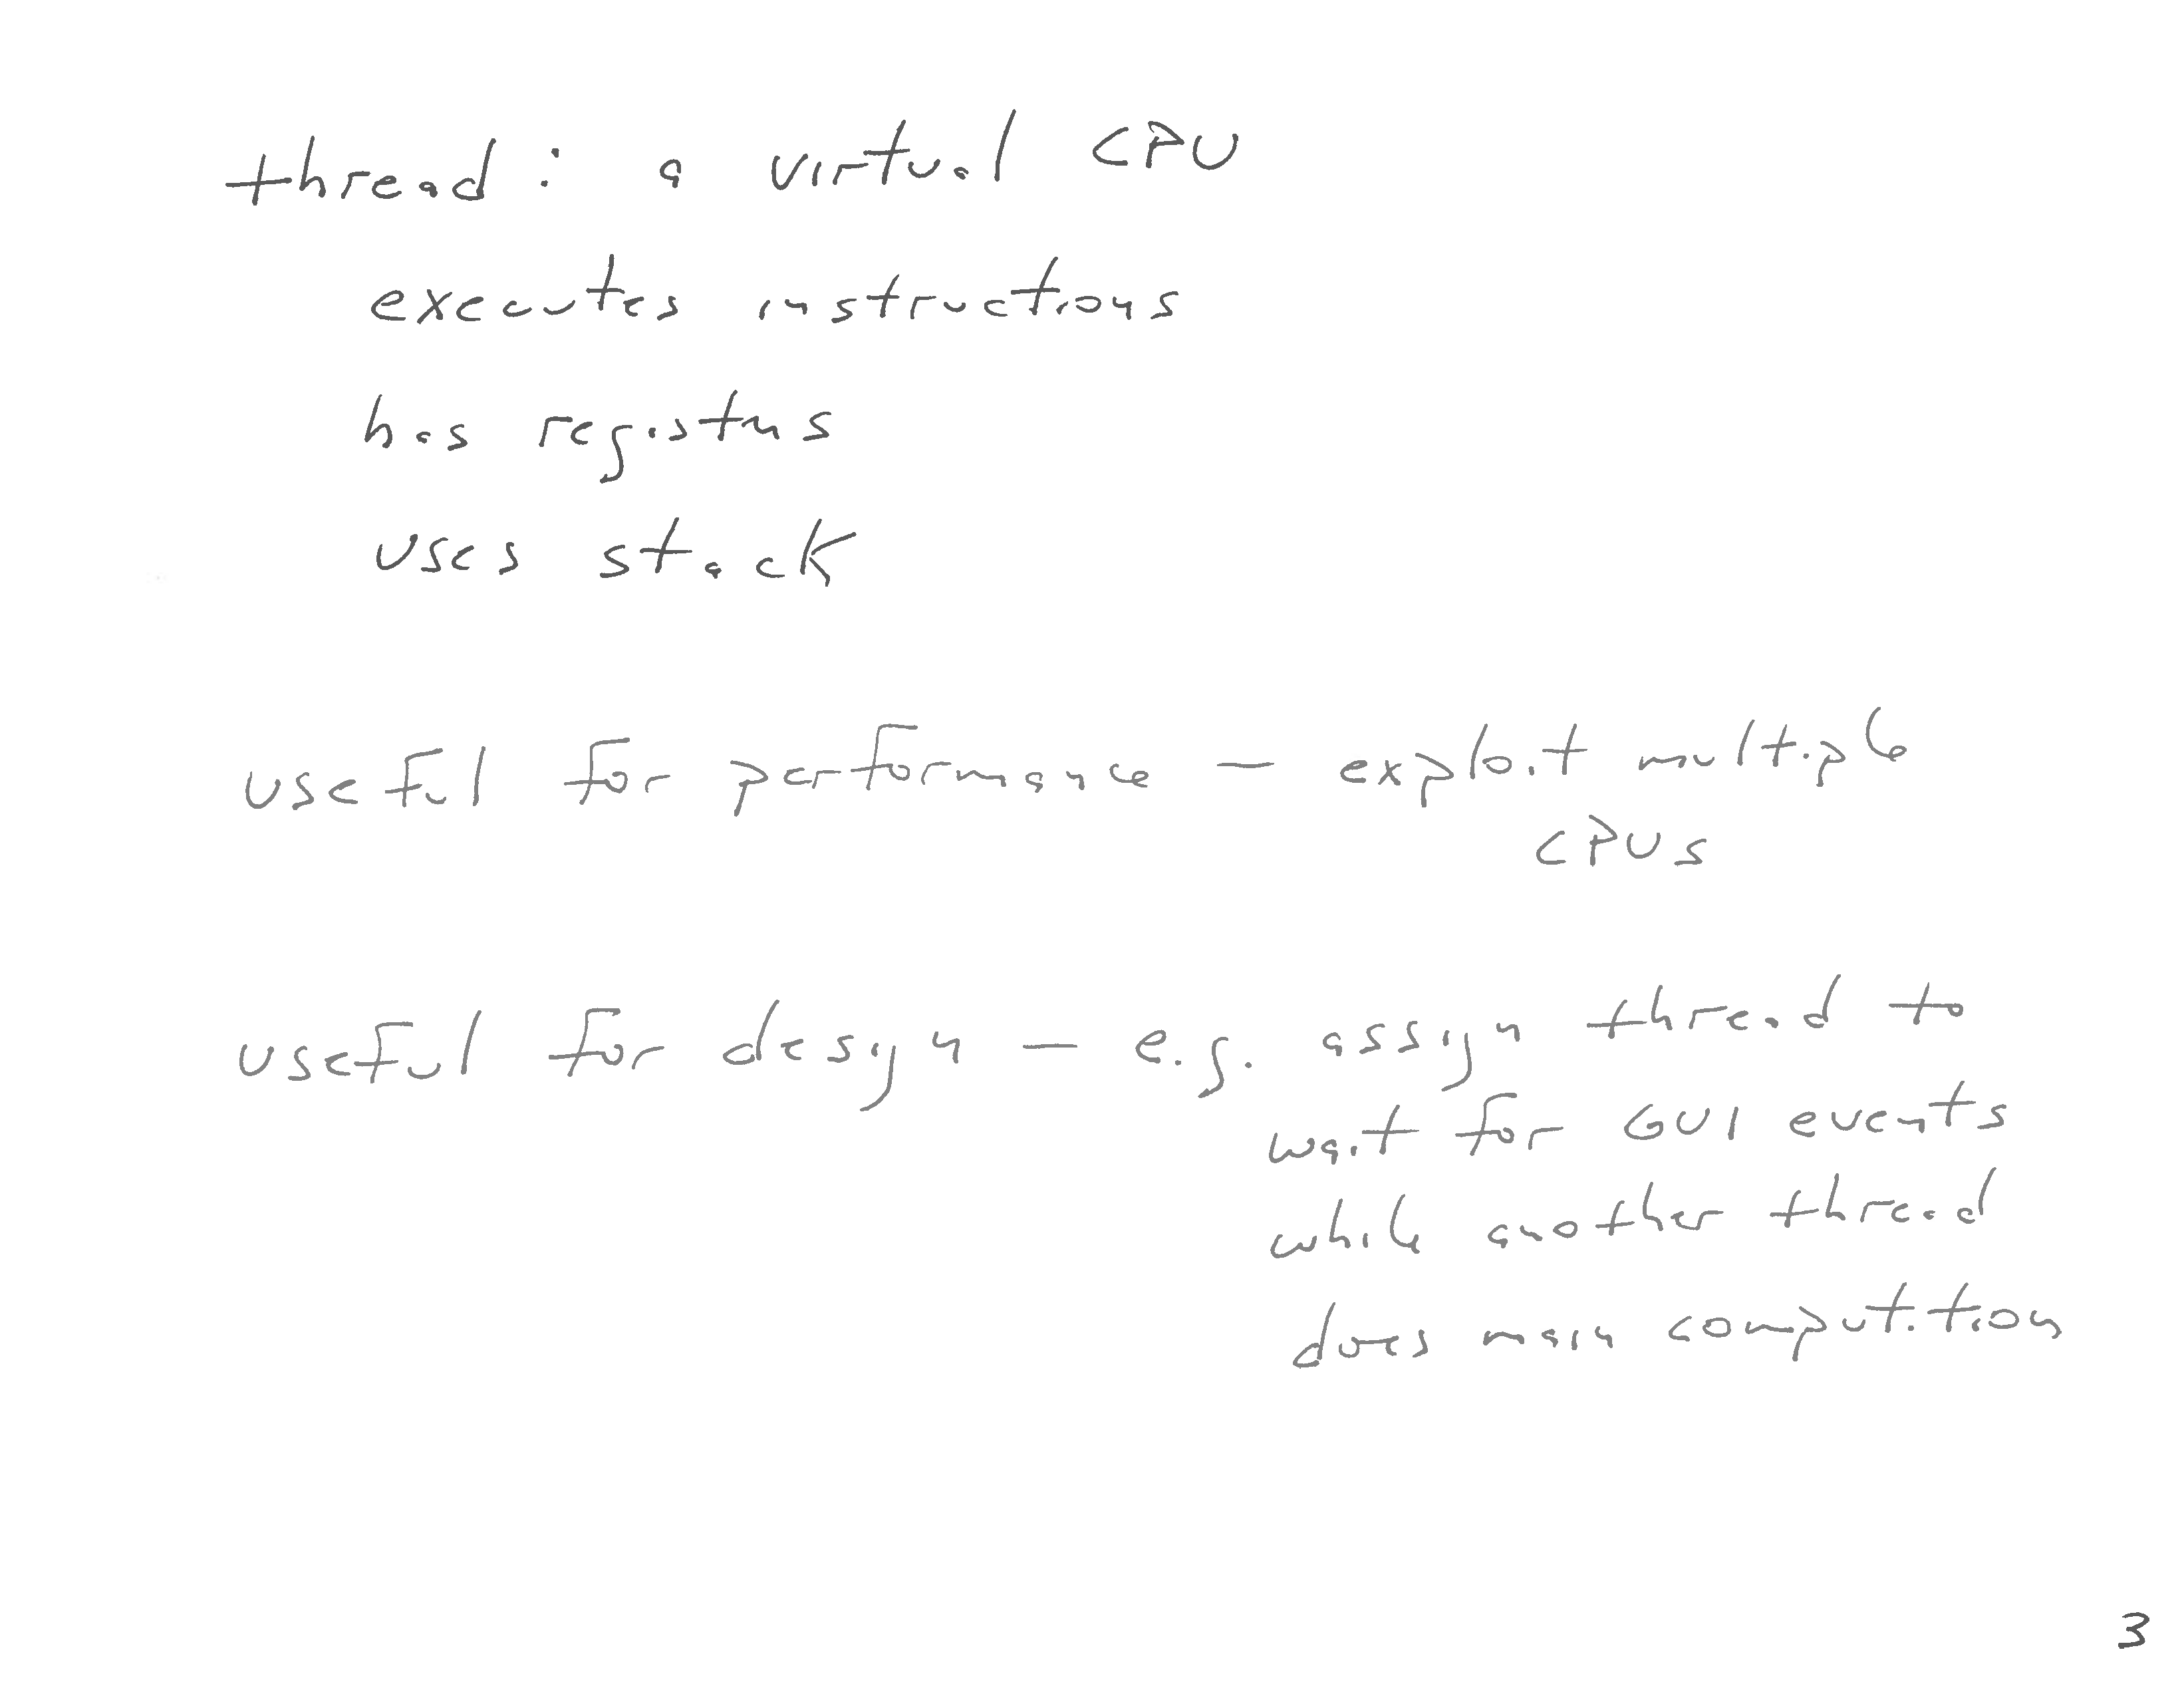 thread: a virtual CPU
executes instructions
has registers
uses stack
useful for performance — exploit multiple
CPUs
useful for design — e.g. assign thread to
wait for GUI events
while another thread
does main computation
3